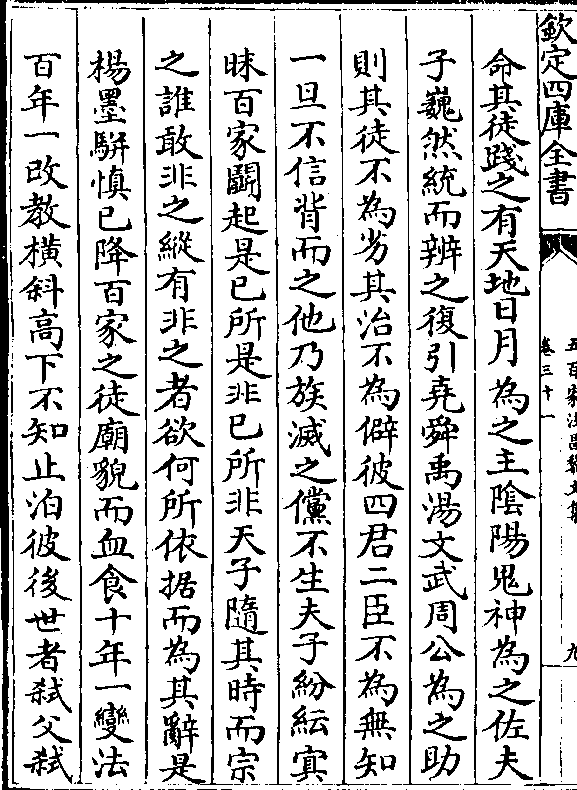 欽定四庫全書
五百家注昌黎文集
卷三十一
九
命其徒踐之有天地日月為之主陰陽鬼神為之佐夫
子巍然統而辨之復引堯舜禹湯文武周公為之助
則其徒不為劣其治不為僻彼四君二臣不為無知
一旦不信背而之他乃族滅之儻不生夫子紛紜寘
昧百家鬭起是已所是非已所非天子隨其時而宗
之誰敢非之縱有非之者欲何所依据而為其辭是
楊墨駢慎已降百家之徒廟貌而血食十年一變法
百年一改教橫斜高下不知止泊彼後世者弑父弑